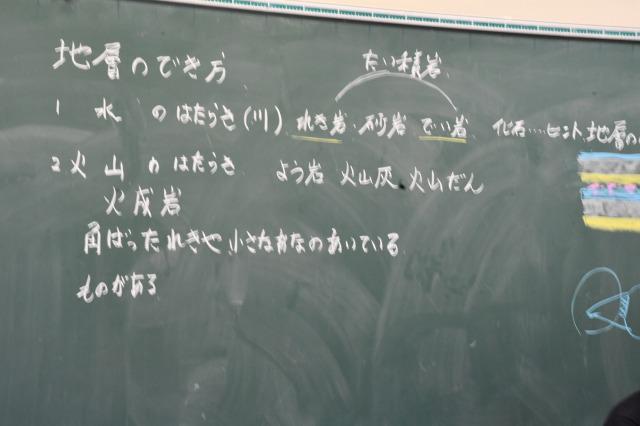 地層のでき方
たい積岩
1 水 のはたらき(川) れき岩 砂岩 でい岩 化石…ヒント 地層の
2 火山 の はたらき よう岩 火山灰 火山だん
火成岩
角ばったれきや、小さなあなのあいている
ものがある